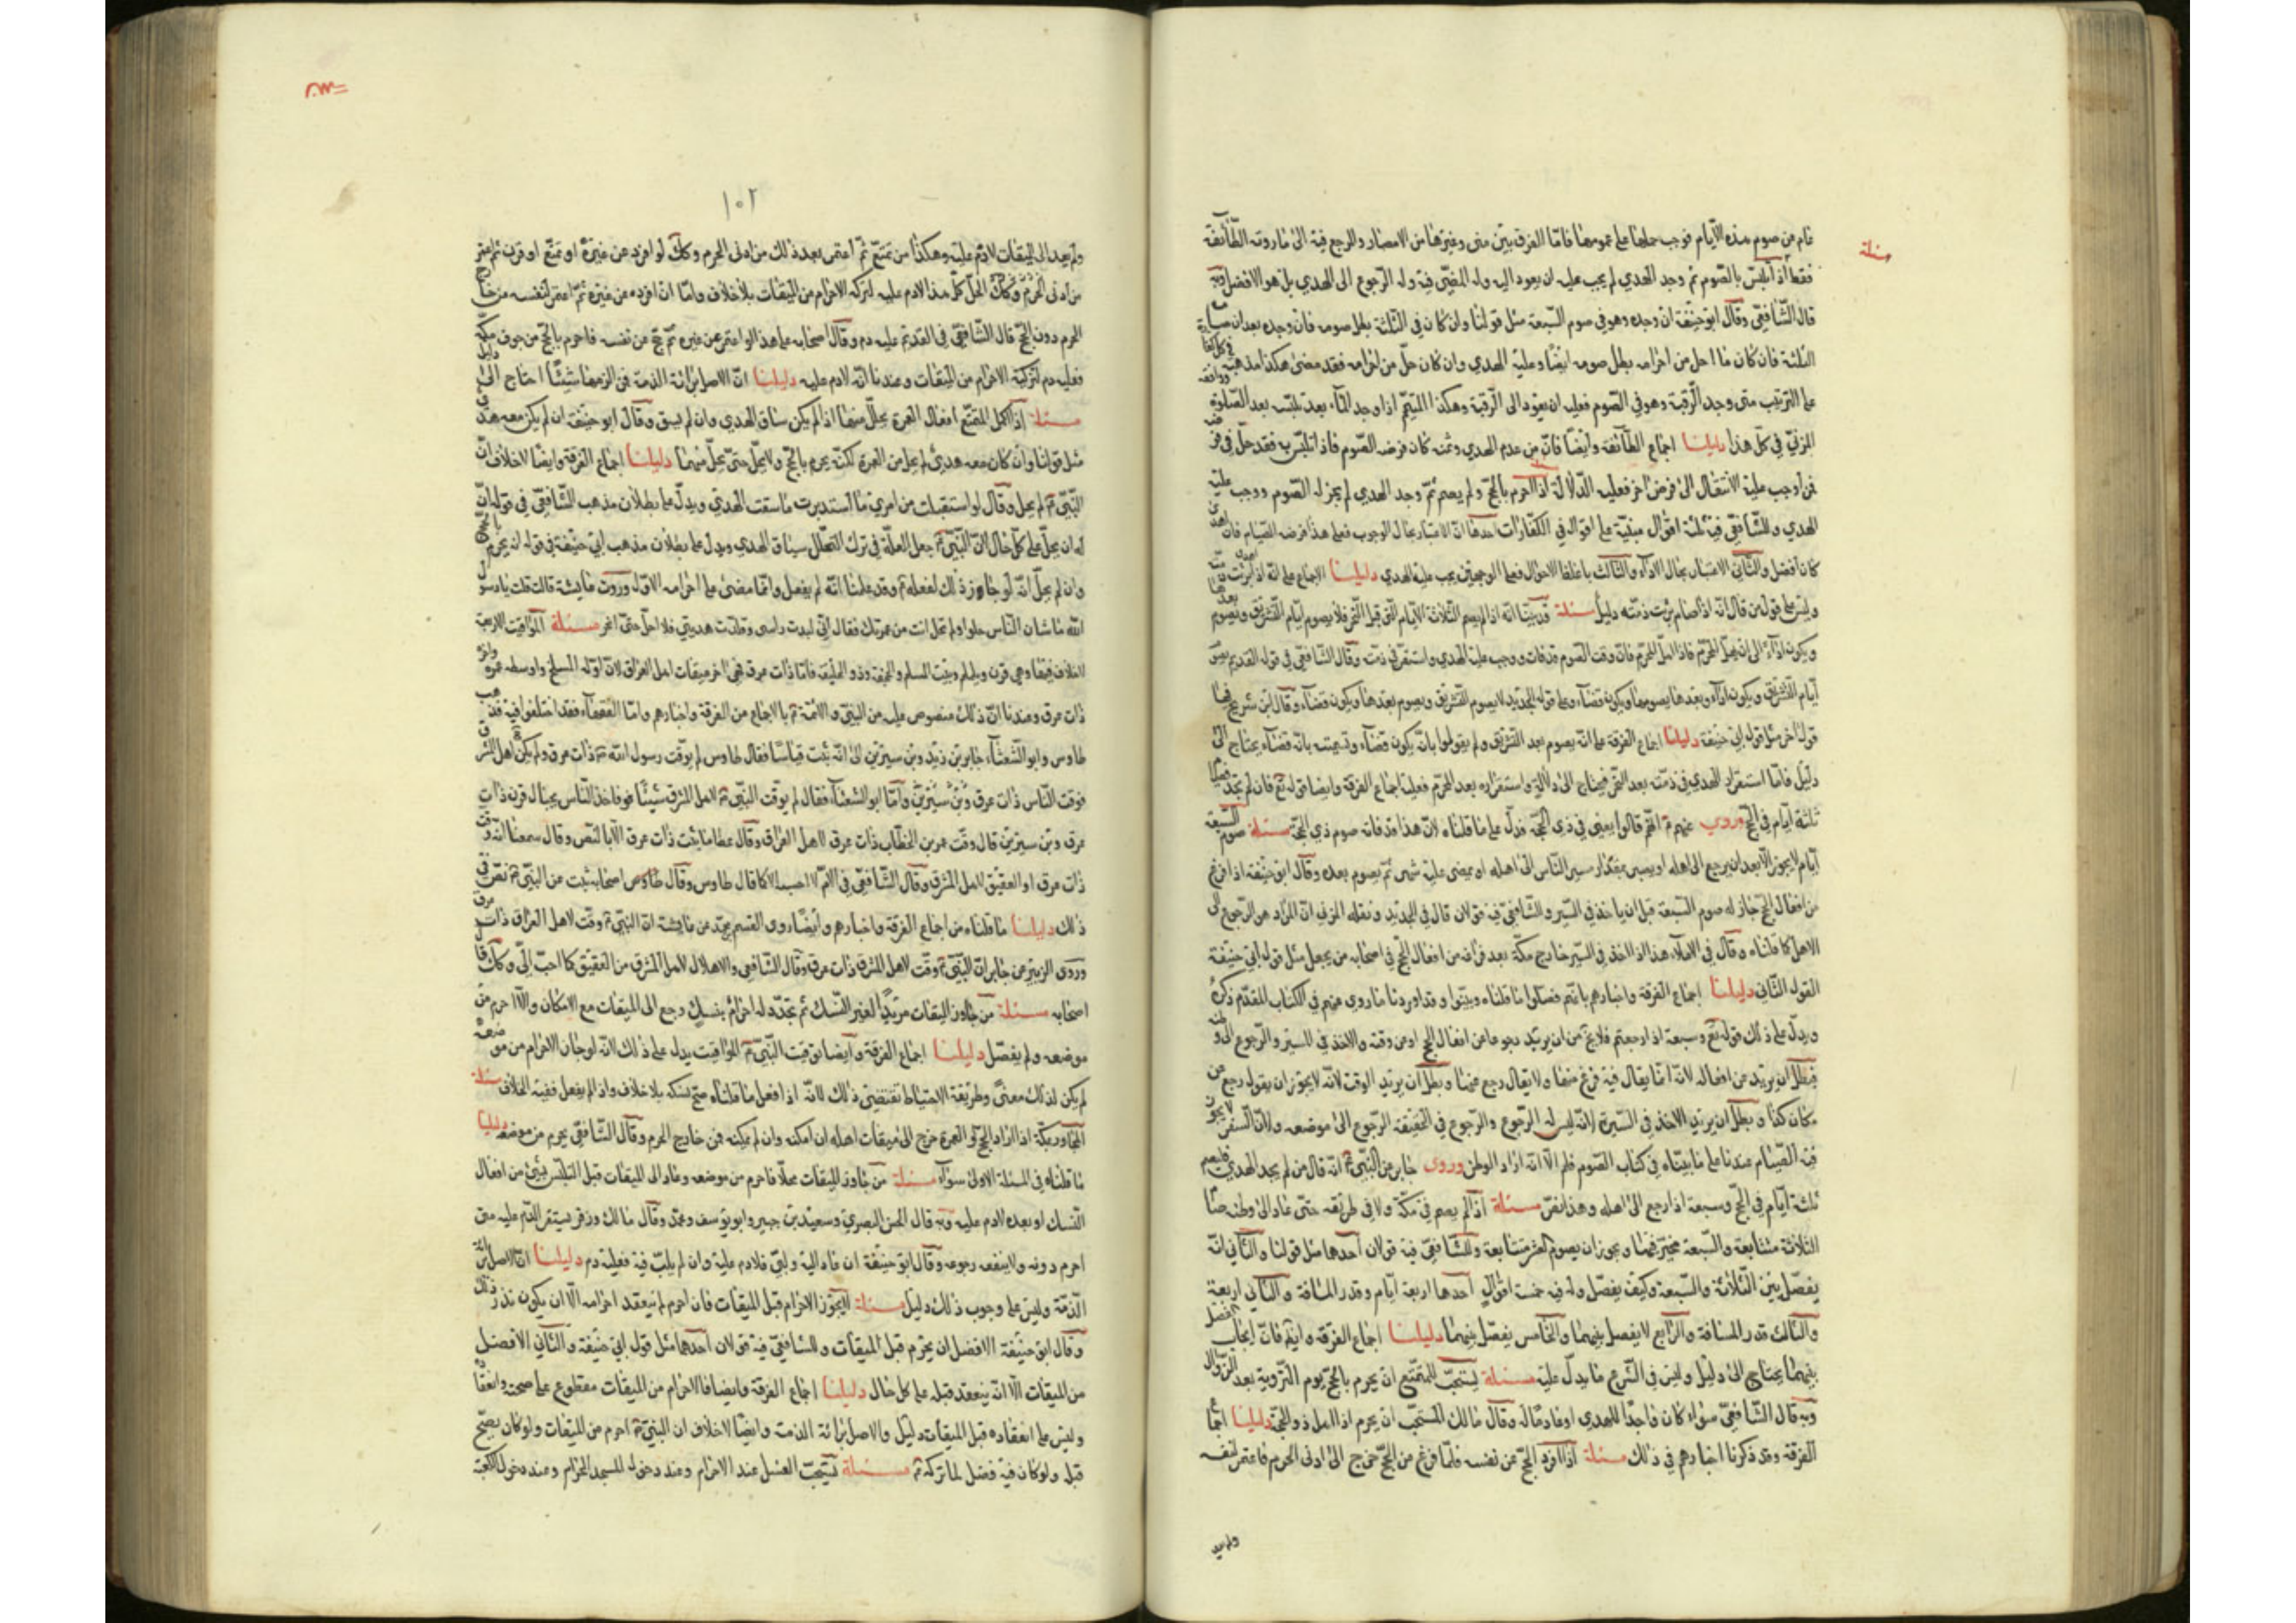 مسئلة
تام من صوم هذه الأيام فوجب حملها على عمومها فاما الفرق بين منى وغيرها من الامصار والرجع فيه الى ما روته الطائفة
فقط اذا تلبس بالصوم ثم وجد الهدي لم يجب عليه ان يعود اليه وله المضي فيه وله الرجوع الى الهدي بل هو الافضل وبه
قال الشافعي وقال ابو حنيفة ان وجده وهو في صوم السبعة مثل قولنا وان كان في الثلثة بطل صومه فان وجده بعد ان صام
الثلثة فان كان ما احل من احرامه بطل صومه ايضا وعليه الهدي وان كان حل من احرامه فقد مضى هكذا مذهبه
على الترتيب متى وجد الرقبة وهو في الصوم فعليه ان يعود الى الرقبة وهكذا المتيمم اذا وجد الماء بعد تلبسه بعد الصلوة
المزني في كل هذا دليلنا اجماع الطائفة وايضا فان من عدم الهدي وثمنه كان فرضه الصوم فاذا تلبس به فقد حل في فرضه
فمن اوجب عليه الانتقال الى فرض اخر فعليه الدلالة اذا احرم بالحج ولم يصم ثم وجد الهدي لم يجز له الصوم ووجب عليه
الهدي وللشافعي فيه ثلثة اقوال مبنية على اقواله في الكفارات احدها ان الاعتبار بحال الوجوب فعلى هذا فرضه الصيام فان
كان افضل والثاني الاعتبار بحال الاداء والثالث باغلظ الاحوال فعلى الوجهين يجب عليه الهدي دليلنا الاجماع على انه اذا
وليس على قول من قال انه اذا صام برئت ذمته دليل مسئلة قد بينا انه اذا لم يصم الثلاثة الايام التي قبل النحر فلا يصوم ايام التشريق ويصوم
ويكون اداء الى ان يهل المحرم فاذا اهل المحرم فات وقت الصوم ووجب عليه الهدي واستقر في ذمته وقال الشافعي في قوله القديم يصوم
ايام التشريق ويكون اداء وبعدها يصومها ويكون قضاء وعلى قوله الجديد لا يصوم التشريق ويصوم بعدها ويكون قضاء وقال ابن شريح فيها
قولا اخر مثل قول ابي حنيفة دليلنا اجماع الفرقة على انه يصوم بعد التشريق ولم يقولوا بانه يكون قضاء وتسميته بانه قضاء يحتاج الى
دليل فاما استقرار الهدي في ذمته بعد النحر فيحتاج الى دلالة واستقراره بعد المحرم فعليه اجماع الفرقة وايضا قوله تع فان لم يجد فصيام
ثلثة ايام في الحج وروي عنهم انهم قالوا يعني في ذي الحجة فدل على ما قلناه لان هذا قد فاته صوم ذي الحجة مسئلة صوم السبعة
ايام لا يجوز الا بعد ان يرجع الى اهله او يصبر بمقدار سير الناس الى اهله او يمضي عليه شهر ثم يصوم بعده وقال ابو حنيفة اذا فرغ
من افعال الحج جاز له صوم السبعة قبل ان ياخذ في السير والشافعي فيه قولان قال في الجديد ونقله المزني ان المراد هو الرجوع الى
الاهل كما قلناه وقال في الاملاء هذا اذا اخذ في السير خارج مكة بعد فراغه من افعال الحج في اصحابه من يجعل مثل قول ابي حنيفة
القول الثاني دليلنا اجماع الفرقة واخبارهم بانهم فصلوا ما قلناه وبينوا وقد اوردنا ما روي عنهم في الكتاب المقدم ذكره
ويدل على ذلك قوله تع وسبعة اذا رجعتم فلا يخ من ان يريد رجوعا من افعال الحج او من وقته والاخذ في السير والرجوع الى وطنه
فبطل ان يريد من افعاله لانه انما يقال فيه فرغ منها ولا يقال رجع عنها وبطل ان يريد الوقت لانه لا يجوز ان يقول رجع من
مكان كذا وبطل ان يريد الاخذ في السير لانه ليس له الرجوع والرجوع في الحقيقة الرجوع الى موضعه ولان السفر لا يجوز
فيه الصيام عندنا على ما بيناه في كتاب الصوم فلم الا انه اراد الوطن وروى جابر عن النبي انه قال من لم يجد الهدي فليصم
ثلثة ايام في الحج وسبعة اذا رجع الى اهله وهذا نص مسئلة اذا لم يصم في مكة ولا في طريقه حتى عاد الى وطنه صام
الثلاثة متتابعة والسبعة مخير فيها ويجوز ان يصوم العشر متتابعة وللشافعي فيه قولان احدها مثل قولنا والثاني انه
يفصل بين الثلاثة والسبعة وكيف يفصل وله فيه خمسة اقوال احدها اربعة ايام وقدر المسافة والثاني اربعة
والثالث قدر المسافة والرابع لا يفصل بينهما والخامس يفصل بينهما دليلنا اجماع الفرقة وايم فان ايجاب الفصل
بينهما يحتاج الى دليل وليس في الشرع ما يدل عليه مسئلة يستحب للمتمتع ان يحرم بالحج يوم التروية بعد الزوال
وبه قال الشافعي سواء كان واجدا للهدي او عادما له وقال مالك المستحب ان يحرم اذا اهل ذو الحجة دليلنا اجماع
الفرقة وقد ذكرنا اخبارهم في ذلك مسئلة اذا افرد الحج عن نفسه فلما فرغ من الحج خرج الى ادنى الحرم فاعتمر لنفسه
ولم يعد
١٠٢
ولم يعد الى الميقات لا دم عليه وهكذا من تمتع ثم اعتمر بعد ذلك من ادنى الحرم وكك لو افرد عن غيره او تمتع او قرن ثم اعتمر
من ادنى الحرم وكك الحل كل هذا لا دم عليه لتركه الاحرام من الميقات بلا خلاف واما ان افرد من غيره ثم اعتمر لنفسه من خارج
الحرم دون الحج قال الشافعي في القديم عليه دم وقال اصحابه على هذا لو اعتمر عن غيره ثم حج عن نفسه فاحرم بالحج من جوف مكة
فعليه دم لتركه الاحرام من الميقات وعندنا انه لا دم عليه دليلنا ان الاصل برائة الذمة فمن الزمها شيئا احتاج الى دليل
مسئلة اذا اكمل المتمتع افعال العمرة يحل منها اذا لم يكن ساق الهدي وان لم يسق وقال ابو حنيفة ان لم يكن معه هدي
مثل قولنا وان كان معه هدي لم يحل من العمرة لكنه يحرم بالحج ولا يحل حتى يحل منهما دليلنا اجماع الفرقة وايضا لا خلاف ان
النبي لم يحل وقال لو استقبلت من امري ما استدبرت ما سقت الهدي ويدل على بطلان مذهب الشافعي في قوله ان
له ان يحل على كل حال ان النبي جعل العلة في ترك التحلل سياق الهدي ويدل على بطلان مذهب ابي حنيفة في قوله انه يحرم بالحج
وان لم يحل انه لو جاز ذلك لفعله وقد علمنا انه لم يفعل وانما مضى على احرامه الاول وروت عايشة قالت قلت يا رسول
الله ما شان الناس حلوا ولم تحل انت من عمرتك فقال اني لبدت راسي وقلدت هديي فلا احل حتى انحر مسئلة المواقيت الاربعة
لا خلاف فيها وهي قرن ويلملم وبيت المسلم والجحفة وذو الحليفة فاما ذات عرق فهي اخر ميقات اهل العراق لان اوله المسلخ واوسطه غمرة واخره
ذات عرق وعندنا ان ذلك منصوص عليه من النبي والائمة بالاجماع من الفرقة واخبارهم واما الفقهاء فقد اختلفوا فيه فذهب
طاوس وابو الشعثاء جابر بن زيد وبن سيرين الى انه يثبت قياسا فقال طاوس لم يوقت رسول الله ذات عرق ولم يكن اهل المشرق
فوقت الناس ذات عرق وبن سيرين واما ابو الشعثاء فقال لم يوقت النبي لاهل المشرق شيئا فوفاخذ الناس بحيال قرن ذات
عرق وبن سيرين قال وقت عمر بن الخطاب ذات عرق لاهل العراق وقال عطا ما يثبت ذات عرق الا بالنص وقال سمعنا انه وقت
ذات عرق او العقيق لاهل المشرق وقال الشافعي في الام لا احسبه الا كما قال طاوس وقال طاوس اصحابه يثبت عن النبي نص في
ذلك دليلنا ما قلناه من اجماع الفرقة واخبارهم وايضا روى القسم بن محمد عن عايشة ان النبي وقت لاهل العراق ذات عرق
وروى الزبير عن جابر ان النبي وقت لاهل المشرق ذات عرق وقال الشافعي والاهلال لاهل المشرق من العقيق كا احب الي وكك قال
اصحابه مسئلة من جاوز الميقات مريدا لغير النسك ثم تجدد له احرام بنسك رجع الى الميقات مع الامكان والا احرم من
موضعه ولم يفصل دليلنا اجماع الفرقة وايضا توقيت النبي المواقيت يدل على ذلك لانه لو جاز الاحرام من موضعه
لم يكن لذلك معنى وطريقة الاحتياط تقتضي ذلك لانه اذا فعل ما قلناه صح نسكه بلا خلاف واذا لم يفعل ففيه الخلاف مسئلة
المجاور بمكة اذا اراد الحج او العمرة خرج الى ميقات اهله ان امكنه وان لم يمكنه فمن خارج الحرم وقال الشافعي يحرم من موضعه دليلنا
ما قلناه في المسئلة الاولى سواء مسئلة من جاوز الميقات محلا فاحرم من موضعه وعاد الى الميقات قبل التلبس بشئ من افعال
النسك او بعده لا دم عليه وبه قال الحسن البصري وسعيد بن جبير وابو يوسف ومحمد وقال مالك وزفر يستقر الدم عليه متى
احرم دونه ولا ينفعه رجوعه وقال ابو حنيفة ان عاد اليه ولبى فلا دم عليه وان لم يلب فيه فعليه دم دليلنا ان الاصل برائة
الذمة وليس على وجوب ذلك دليل مسئلة لا يجوز الاحرام قبل الميقات فان احرم لم ينعقد احرامه الا ان يكون نذر ذلك
وقال ابو حنيفة الافضل ان يحرم قبل الميقات وللشافعي فيه قولان احدهما مثل قول ابي حنيفة والثاني الافضل
من الميقات الا انه ينعقد قبله على كل حال دليلنا اجماع الفرقة وايضا فالاحرام من الميقات مقطوع على صحته وانعقاده
وليس على انعقاده قبل الميقات دليل والاصل برائة الذمة وايضا لا خلاف ان النبي احرم من الميقات ولو كان يصح
قبله ولو كان فيه فضل لما تركه مسئلة يستحب الغسل عند الاحرام وعند دخول المسجد الحرام وعند دخول الكعبة